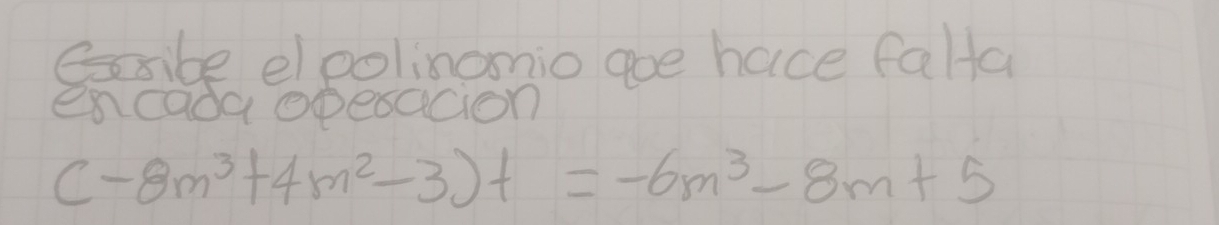 Escribe el polinomio que hace falta
en cada operacion
(-8m³+4m²-3)+ = -6m³-8m+5